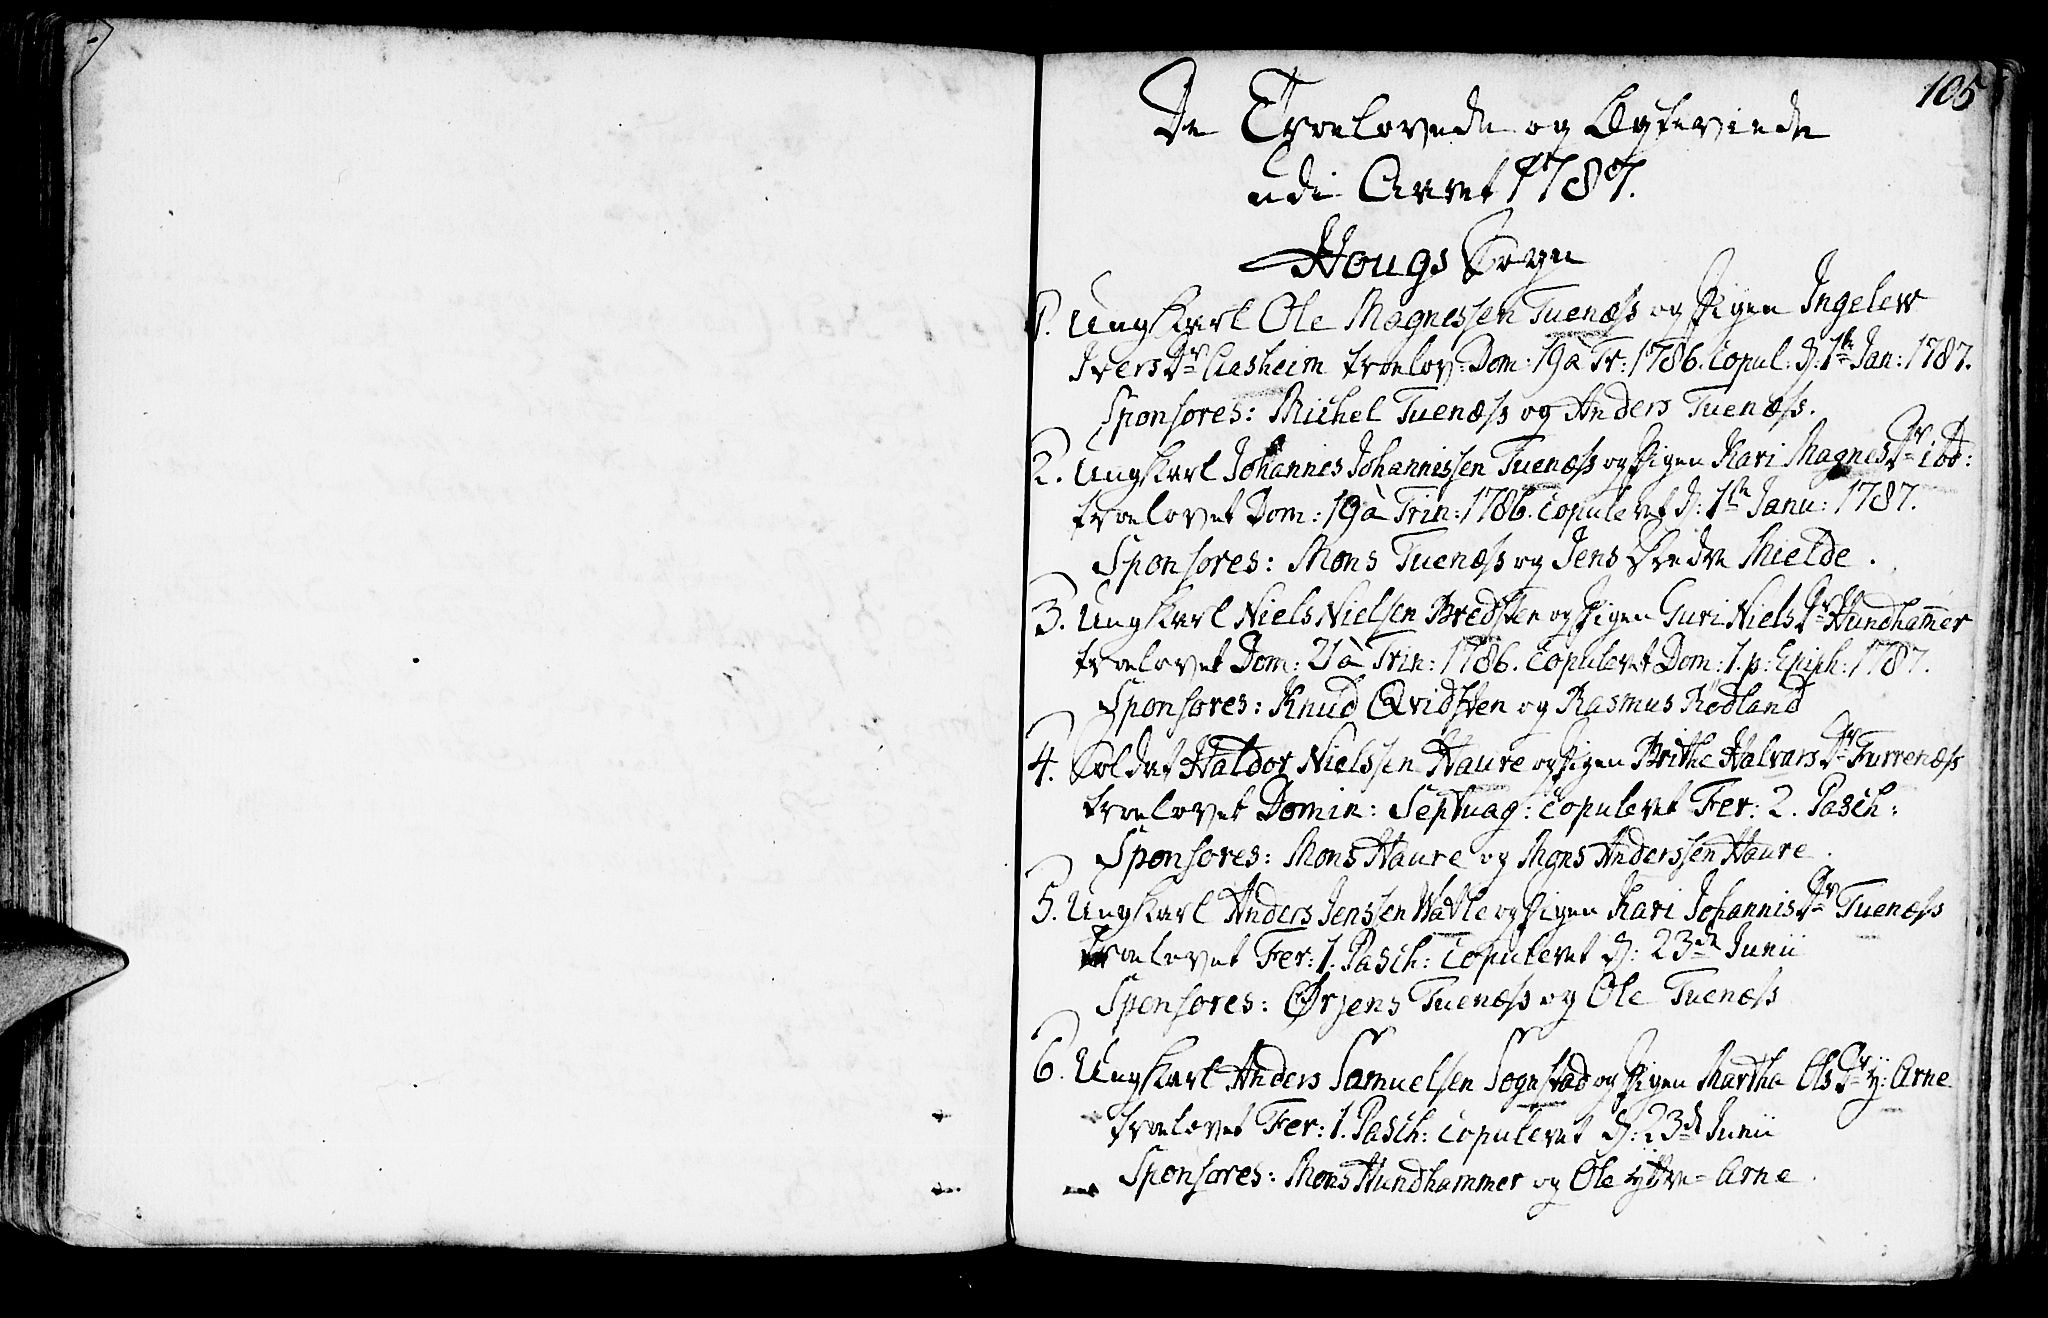 105
De Troelovede og Ægteviede
udi Aaret 1787.
Hougs Sogn
1. Ungkarl Ole Magnessen Tuenæss og Pigen Ingelew
IversDr Aasheim troelov: Dom: 19 à Tr: 1786. Copul: d: 1te Jan: 1787.
Sponsores: Michel Tuenæss og Anders Tuenæss.
2. Ungkarl Johannes Johannissen Tuenæss og Pigen Kari MagnesDr ibd:
troelovet Dom: 19 à Trin: 1786. Copuleret d: 1te Janu: 1787.
Sponsores: Mons Tuenæss og Jens Nedre Mielde.
3. Ungkarl Niels Nielsen Bredsteen og Pigen Guri NielsDr Hundham̅er
troelovet Dom: 21 à Trin: 1786. Copuleret Dom: 1. p: Epiph: 1787.
Sponsores: Knud Qvidsteen og Rasmus Rødland
4. Soldat Haldor Nielssen Haure og Pigen Brithe HalvarsDr Furrenæss
troelovet Domin: Septuag: Copuleret Fer: 2. Pasch:
Sponsores: Mons Haure og Mons Anderssen Haure.
5. Ungkarl Anders Jenssen Watle og Pigen Kari JohannisDr Tuenæss
troelovet Fer: 1. Pasch: Copuleret d: 23de Junii
Sponsores: Ørjens Tuenæss og Ole Tuenæss
6. Ungkarl Anders Samuelsen Sognstad og Pigen Martha OlsDr y: Arne
troelovet Fer: 1. Pasch: Copuleret d: 23de Junii
Sponsores: Mons Hundhammer og Ole ydre= Arne.